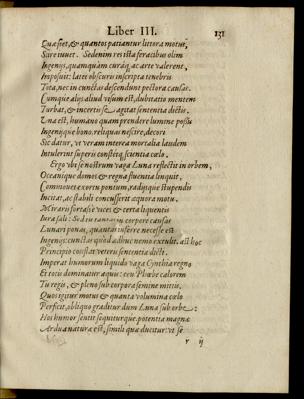 Liber III. 131
Quæ siet, & quantos patiantur littora motus,
Scire iuuet. Sed enim res ista feracibus olim
Ingenijs, quamquàm curáq; ac arte valerent,
Imposuit: latet obscuris inscripta tenebris
Tota, nec in cunctas descendunt pectora causas.
Cumque alijs aliud visum est, dubitatio mentem
Turbat, & incertis se agitat sententia dictis,
Vna est, humano quam prendere lumine possu
Ingenijque bono. reliquas nescire, decori
Sic datur, vt veram interea mortalia laudem
Intulerint superis constetq; scientia cælo.
Ergo vbi se nostrum vaga Luna reflectit in orbem,
Oceanique domos & regna fluentia linquit,
Commouet exortu pontum, radijsque stupendis
Incitat, ac stabili concusserit æquora motu.
Mirari fortasse vices & certa liquentis
Iura sali: Sed eu tantas in corpore causas
Lunari ponas, quantas inferre necesse est
Ingenijs: cunctas quod adhuc nemo extulit. ast hoc
Principio constat veteris sententia dicti.
Imperat humorum liquido vaga Cynthia regno
Et toti dominatur aquis: een Phœbe calorem
Tu regis, & pleno sub corpora semine mittis,
Quos igitur motus & quanta volumina cælo
Perficit, obliquo graditur dum Luna sub orbe:
Hos humor sentit sequiturque. potentia magnæ
Ardua naturæ est, simili quæ ducitur: vt se
r ij